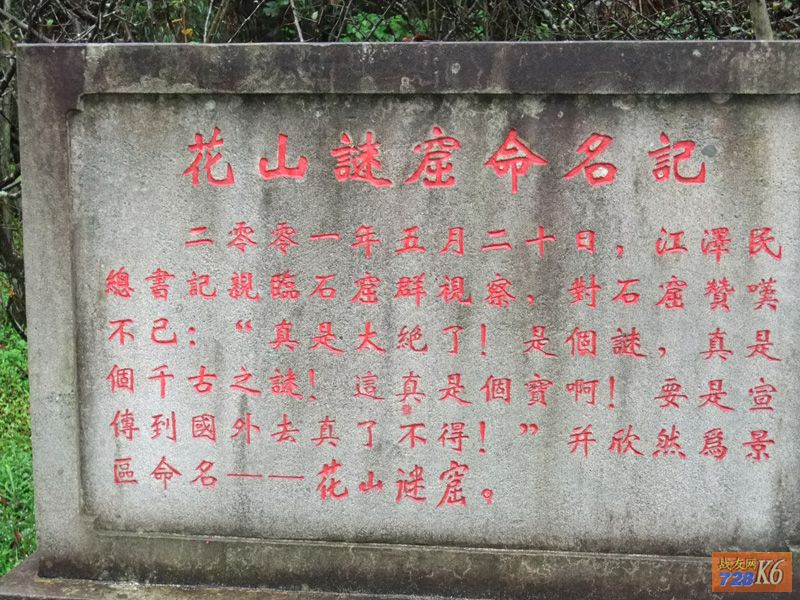 花山謎窟命名記
二零零一年五月二十日，江澤民
總書記親臨石窟群視察，對石窟贊嘆
不已：“真是太絕了！是個謎，真是
個千古之謎！這真是個寶啊！要是宣
傳到國外去真了不得！”并欣然爲景
區命名——花山谜窟。
战友网
728K6